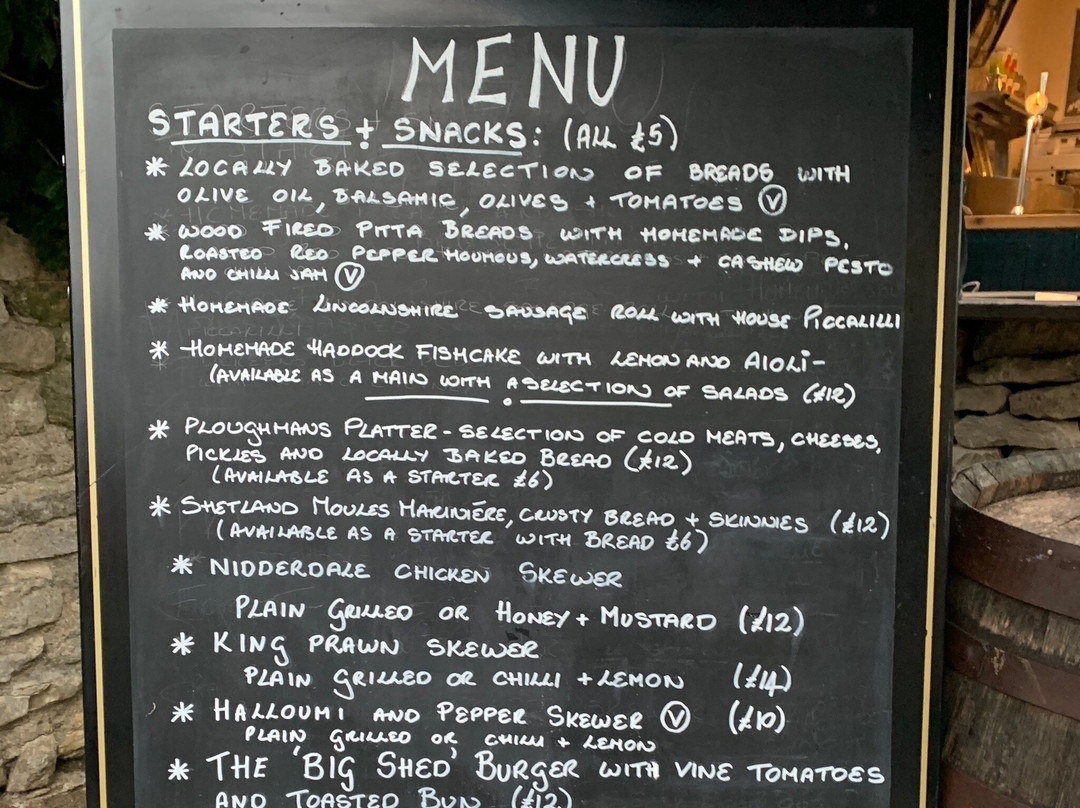 MENU
STARTERS + SNACKS: (ALL £5)
* LOCALLY BAKED SELECTION OF BREADS WITH
OLIVE OIL, BALSAMIC, OLIVES + TOMATOES Ⓥ
* WOOD FIRED PITTA BREADS WITH HOMEMADE DIPS,
ROASTED RED PEPPER HOUMOUS, WATERCRESS + CASHEW PESTO
AND CHILLI JAM Ⓥ
* HOMEMADE LINCOLNSHIRE SAUSAGE ROLL WITH HOUSE PICCALILLI
* HOMEMADE HADDOCK FISHCAKE WITH LEMON AND AIOLI -
(AVAILABLE AS A MAIN WITH A SELECTION OF SALADS (£12)
* PLOUGHMANS PLATTER - SELECTION OF COLD MEATS, CHEESES,
PICKLES AND LOCALLY BAKED BREAD (£12)
(AVAILABLE AS A STARTER £6)
* SHETLAND MOULES MARINIÉRE, CRUSTY BREAD + SKINNIES (£12)
(AVAILABLE AS A STARTER WITH BREAD £6)
* NIDDERDALE CHICKEN SKEWER
PLAIN GRILLED OR HONEY + MUSTARD (£12)
* KING PRAWN SKEWER
PLAIN GRILLED OR CHILLI + LEMON (£14)
* HALLOUMI AND PEPPER SKEWER Ⓥ (£10)
PLAIN GRILLED OR CHILLI + LEMON
* THE 'BIG SHED' BURGER WITH VINE TOMATOES
AND TOASTED BUN (£12)